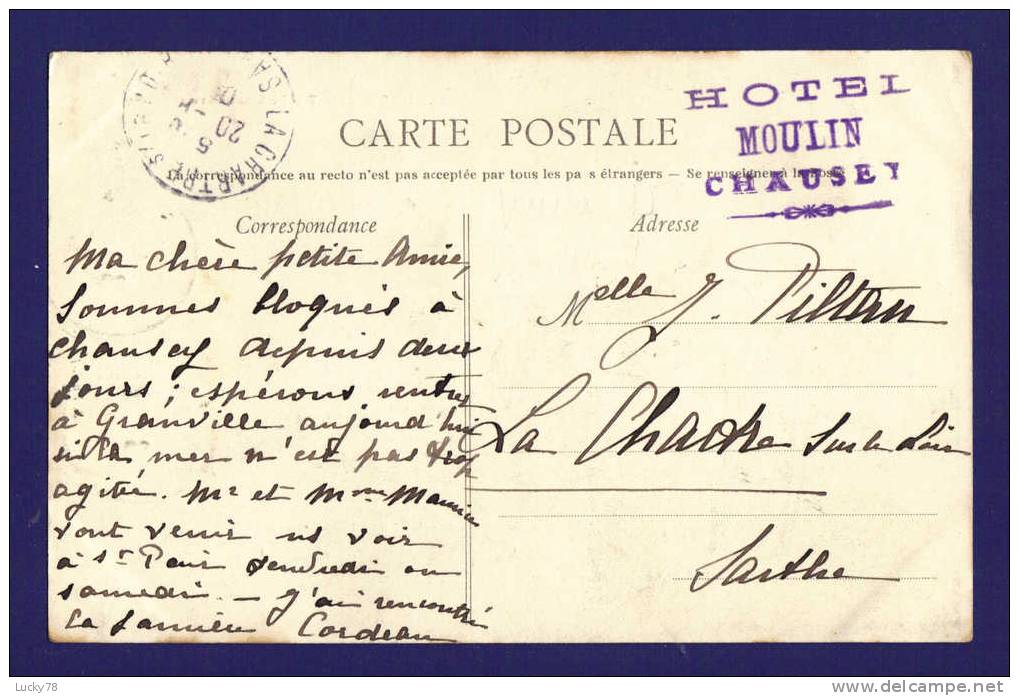 LA CHARTRE S
20
5
HOTEL
MOULIN
CHAUSEY
CARTE POSTALE
La correspondance au recto n'est pas acceptée par tous les pa s étrangers — Se renseigner à la Poste
Correspondance
Adresse
Ma chère petite Amie,
Sommes bloqués à
chausey depuis deux
jours ; espérons rentrer
à Granville aujourd'hui
si la mer n'est pas trop
agitée. Mr et Mme Maurice
vont venir ns voir
à St Pair vendredi ou
samedi. — J'ai rencontré
la famille Cordeau
Melle J. Piltan
La Chartre sur le Loir
Sarthe
Lucky78
www.delcampe.net